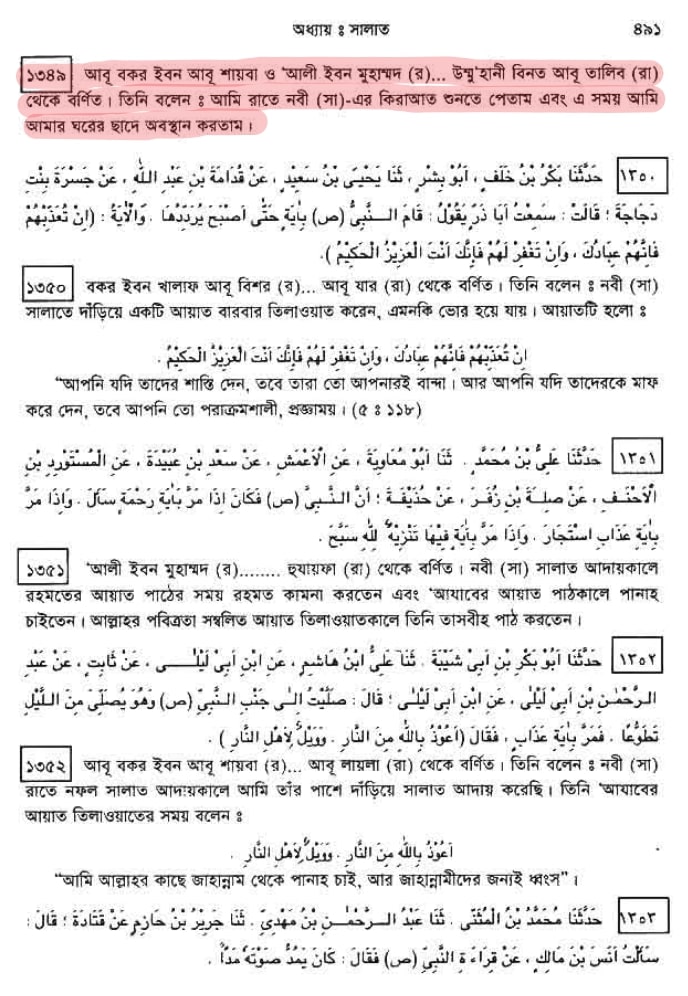 অধ্যায় ঃ সালাত ৪৯১
১৩৪৯ আবূ বকর ইবন আবূ শায়বা ও ‘আলী ইবন মুহাম্মদ (র)... উম্মু‘হানী বিনত আবূ তালিব (রা)
থেকে বর্ণিত। তিনি বলেন ঃ আমি রাতে নবী (সা)-এর কিরাআত শুনতে পেতাম এবং এ সময় আমি
আমার ঘরের ছাদে অবস্থান করতাম।
١٣٥٠ حَدَّثَنَا بَكْرُ بْنُ خَلَفٍ ، اَبُوْ بِشْرٍ ، ثَنَا يَحْيَى بْنُ سَعِيْدٍ ، عَنْ قُدَامَةَ بْنِ عَبْدِ اللّٰهِ ، عَنْ جَسْرَةَ بِنْتِ
دَجَاجَةَ ؛ قَالَتْ : سَمِعْتُ اَبَا ذَرٍّ يَقُوْلُ : قَامَ النَّبِىُّ (ص) بِاٰيَةٍ حَتّٰى اَصْبَحَ يُرَدِّدُهَا . وَالْاٰيَةُ : (اِنْ تُعَذِّبْهُمْ
فَاِنَّهُمْ عِبَادُكَ ، وَاِنْ تَغْفِرْ لَهُمْ فَاِنَّكَ اَنْتَ الْعَزِيْزُ الْحَكِيْمُ ).
১৩৫০ বকর ইবন খালাফ আবূ বিশর (র)... আবূ যার (রা) থেকে বর্ণিত। তিনি বলেন ঃ নবী (সা)
সালাতে দাঁড়িয়ে একটি আয়াত বারবার তিলাওয়াত করেন, এমনকি ভোর হয়ে যায়। আয়াতটি হলো ঃ
اِنْ تُعَذِّبْهُمْ فَاِنَّهُمْ عِبَادُكَ ، وَاِنْ تَغْفِرْ لَهُمْ فَاِنَّكَ اَنْتَ الْعَزِيْزُ الْحَكِيْمُ .
“আপনি যদি তাদের শাস্তি দেন, তবে তারা তো আপনারই বান্দা। আর আপনি যদি তাদেরকে মাফ
করে দেন, তবে আপনি তো পরাক্রমশালী, প্রজ্ঞাময়। (৫ ঃ ১১৮)
١٣٥١ حَدَّثَنَا عَلِىُّ بْنُ مُحَمَّدٍ . ثَنَا اَبُوْ مُعَاوِيَةَ ، عَنِ الْاَعْمَشِ ، عَنْ سَعْدِ بْنِ عُبَيْدَةَ ، عَنِ الْمُسْتَوْرِدِ بْنِ
الْاَحْنَفِ ، عَنْ صِلَةَ بْنِ زُفَرَ ، عَنْ حُذَيْفَةَ ؛ اَنَّ النَّبِىَّ (ص) فَكَانَ اِذَا مَرَّ بِاٰيَةِ رَحْمَةٍ سَاَلَ . وَاِذَا مَرَّ
بِاٰيَةِ عَذَابٍ اسْتَجَارَ . وَاِذَا مَرَّ بِاٰيَةٍ فِيْهَا تَنْزِيْهٌ لِلّٰهِ سَبَّحَ .
১৩৫১ ‘আলী ইবন মুহাম্মদ (র)........ হুযায়ফা (রা) থেকে বর্ণিত। নবী (সা) সালাত আদায়কালে
রহমতের আয়াত পাঠের সময় রহমত কামনা করতেন এবং ‘আযাবের আয়াত পাঠকালে পানাহ
চাইতেন। আল্লাহর পবিত্রতা সম্বলিত আয়াত তিলাওয়াতকালে তিনি তাসবীহ পাঠ করতেন।
١٣٥٢ حَدَّثَنَا اَبُوْ بَكْرِ بْنِ اَبِىْ شَيْبَةَ . ثَنَا عَلِىُّ ابْنُ هَاشِمٍ ، عَنِ ابْنِ اَبِىْ لَيْلٰى ، عَنْ ثَابِتٍ ، عَنْ عَبْدِ
الرَّحْمٰنِ بْنِ اَبِىْ لَيْلٰى ، عَنِ ابْنِ اَبِىْ لَيْلٰى ؛ قَالَ : صَلَّيْتُ اِلٰى جَنْبِ النَّبِىِّ (ص) وَهُوَ يُصَلِّىْ مِنَ اللَّيْلِ
تَطَوُّعًا . فَمَرَّ بِاٰيَةِ عَذَابٍ ، فَقَالَ (اَعُوْذُ بِاللّٰهِ مِنَ النَّارِ . وَوَيْلٌ لِاَهْلِ النَّارِ ) .
১৩৫২ আবূ বকর ইবন আবূ শায়বা (র)... আবূ লায়লা (রা) থেকে বর্ণিত। তিনি বলেন ঃ নবী (সা)
রাতে নফল সালাত আদায়কালে আমি তাঁর পাশে দাঁড়িয়ে সালাত আদায় করেছি। তিনি ‘আযাবের
আয়াত তিলাওয়াতের সময় বলেন ঃ
اَعُوْذُ بِاللّٰهِ مِنَ النَّارِ . وَوَيْلٌ لِاَهْلِ النَّارِ .
“আমি আল্লাহর কাছে জাহান্নাম থেকে পানাহ চাই, আর জাহান্নামীদের জন্যই ধ্বংস”।
١٣٥٣ حَدَّثَنَا مُحَمَّدُ بْنُ الْمُثَنّٰى . ثَنَا عَبْدُ الرَّحْمٰنِ بْنُ مَهْدِىٍّ . ثَنَا جَرِيْرُ بْنُ حَازِمٍ عَنْ قَتَادَةَ ؛ قَالَ :
سَاَلْتُ اَنَسَ بْنَ مَالِكٍ ، عَنْ قِرَاءَةِ النَّبِىِّ (ص) فَقَالَ : كَانَ يَمُدُّ صَوْتَهُ مَدًّا .